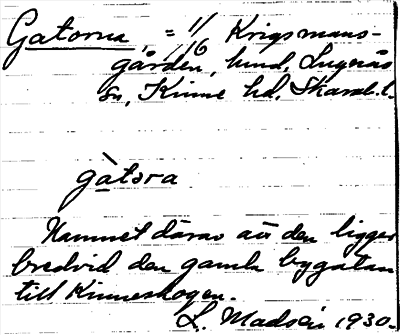 Gatorna, = 1/16 Krigsmans-
gården, hmd, Lugnås
sn, Kinne hd, Skarab.l.
gàtora
Namnet därav att den ligger
bredvid den gamla bygatan
till Kinneskogen.
L. Madsén 1930.